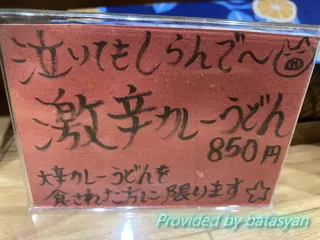 泣いてもしらんで〜
激辛カレーうどん
850円
大辛カレーうどんを
食された方に限ります☆
Provided by batasyan